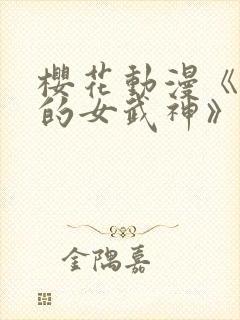 櫻花動漫《
的女武神》
金隅嘉